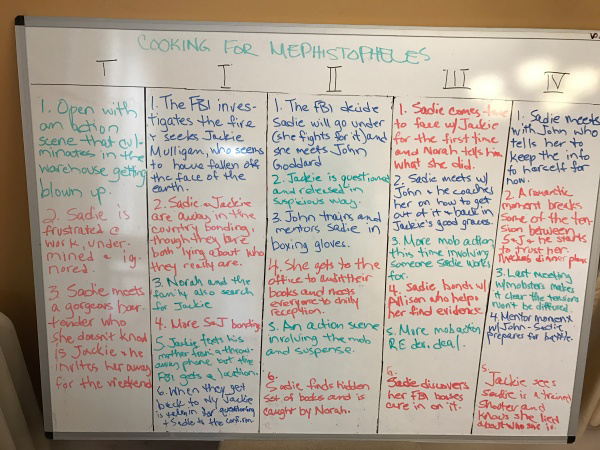 COOKING FOR MEPHISTOPHELES
T
1. Open with
an action
scene that cul-
minates in the
warehouse getting
blown up.
2. Sadie is
frustrated @
work, under-
mined & ig-
nored.
3. Sadie meets
a gorgeous bar-
tender who
she doesn't know
is Jackie & he
invites her away
for the weekend
I
1. The FBI inves-
tigates the fire
& seeks Jackie
Mulligan, who seems
to have fallen off
the face of the
earth.
2. Sadie & Jackie
are away in the
country bonding,
though they are
both lying about who
they really are.
3. Norah and the
family also search
for Jackie
4. More S&J bonding
5. Jackie texts his
mother from a throw-
away phone but the
FBI gets a location.
6. When they get
back to NY Jackie
is taken in for questioning
& Sadie to the
II
1. The FBI decide
Sadie will go under
(she fights for it) and
she meets John
Goddard
2. Jackie is questioned
and released in
suspicious way.
3. John trains and
mentors Sadie in
boxing gloves.
4. She gets to the
office to audit their
books and meets
everyone to chilly
reception.
5. An action scene
involving the mob
and suspense.
6.
Sadie finds hidden
set of books and is
caught by Norah.
III
1. Sadie comes face
to face w/ Jackie
for the first time
and Norah tells him
what she did.
2. Sadie meets w/
John & he coaches
her on how to get
out of it & back in
Jackie's good graces.
3. More mob action
this time involving
someone Sadie works
for.
4. Sadie bonds w/
Allison who helps
her find evidence.
5. More mob action
RE dev. deal.
6.
Sadie discovers
her FBI bosses
are in on it.
IV
1. Sadie meets
with John who
tells her to
keep the info
to herself for
now.
2. A romantic
moment breaks
some of the ten-
sion between
S&J & he starts
to trust her.
dinner plans
3. Last meeting
w/ mobsters makes
it clear the tensions
won't be diffused.
4. Mentor moment
w/ John - Sadie
prepares for battle.
5.
Jackie sees
Sadie is a trained
shooter and
knows she lied
about who she is.